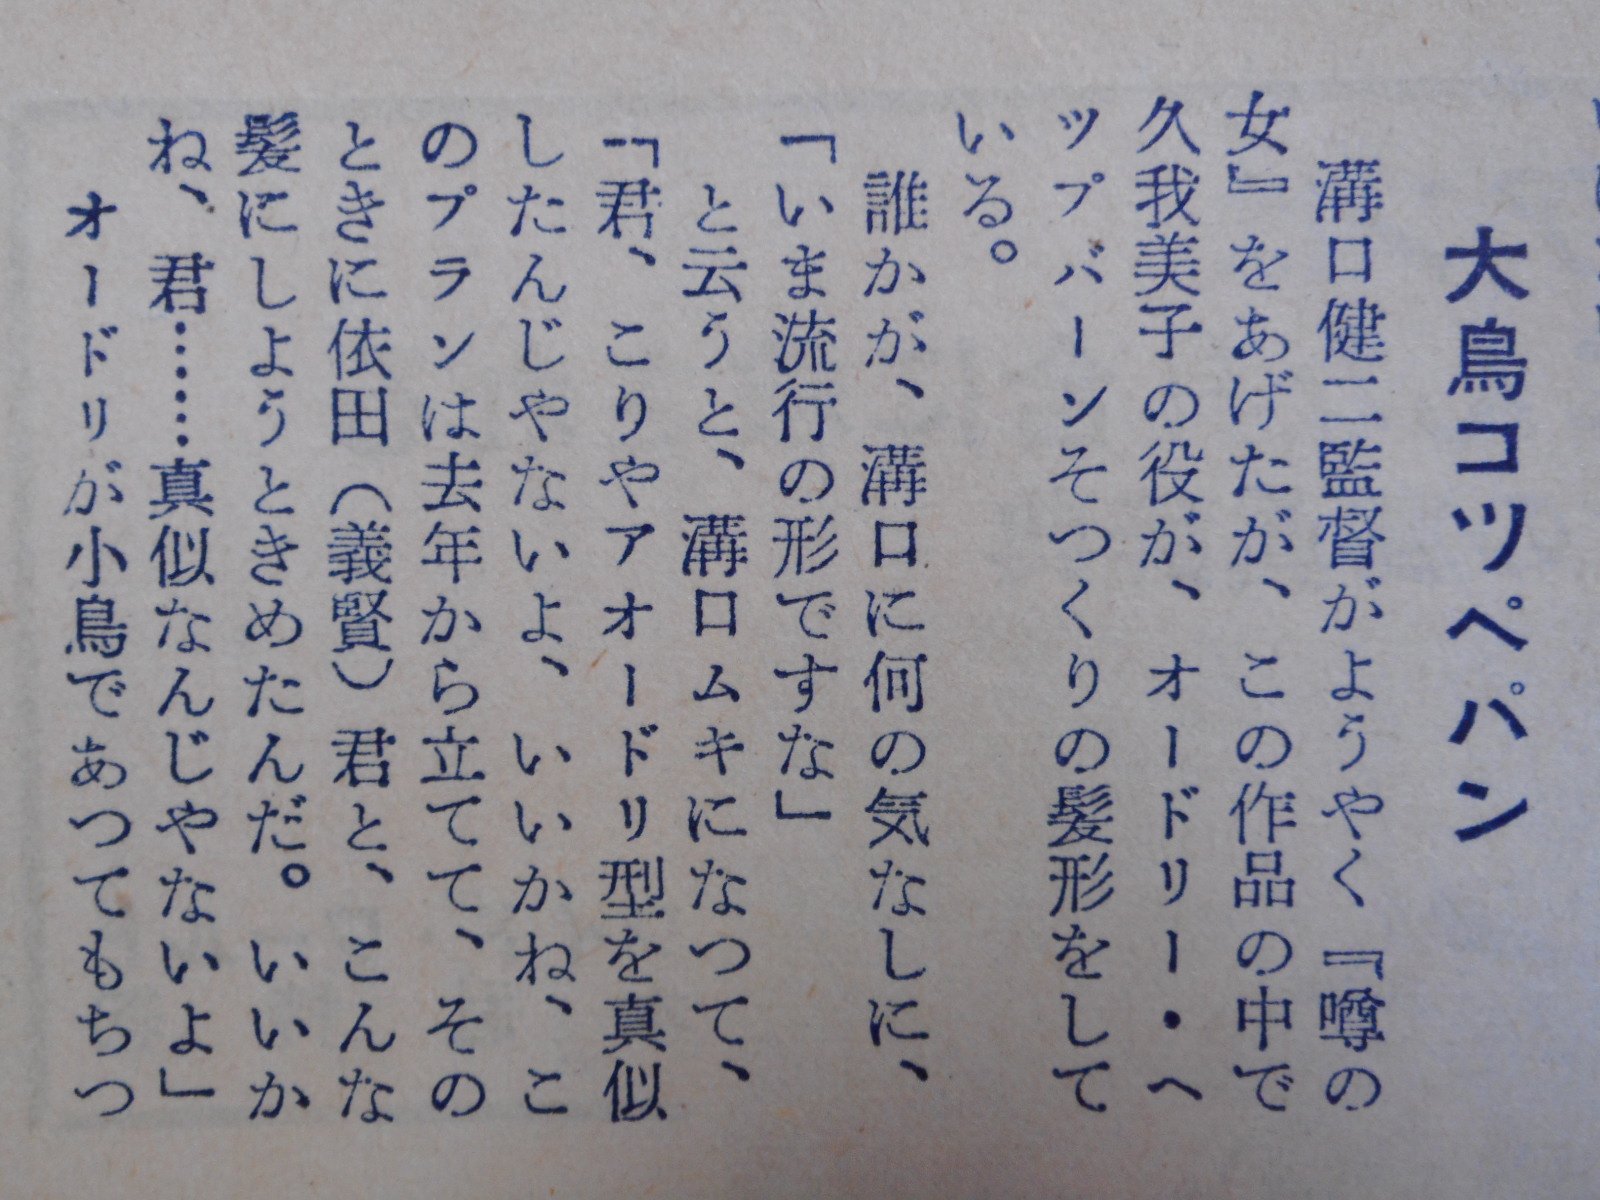 大鳥コツペパン
溝口健二監督がようやく『噂の
女』をあげたが、この作品の中で
久我美子の役が、オードリー・ヘ
ツプバーンそつくりの髪形をして
いる。
誰かが、溝口に何の気なしに、
「いま流行の形ですな」
と云うと、溝口ムキになつて、
「君、こりやアオードリ型を真似
したんじやないよ、いいかね、こ
のプランは去年から立てて、その
ときに依田（義賢）君と、こんな
髪にしようときめたんだ。いいか
ね、君……真似なんじやないよ」
オードリが小鳥であつてもちつ